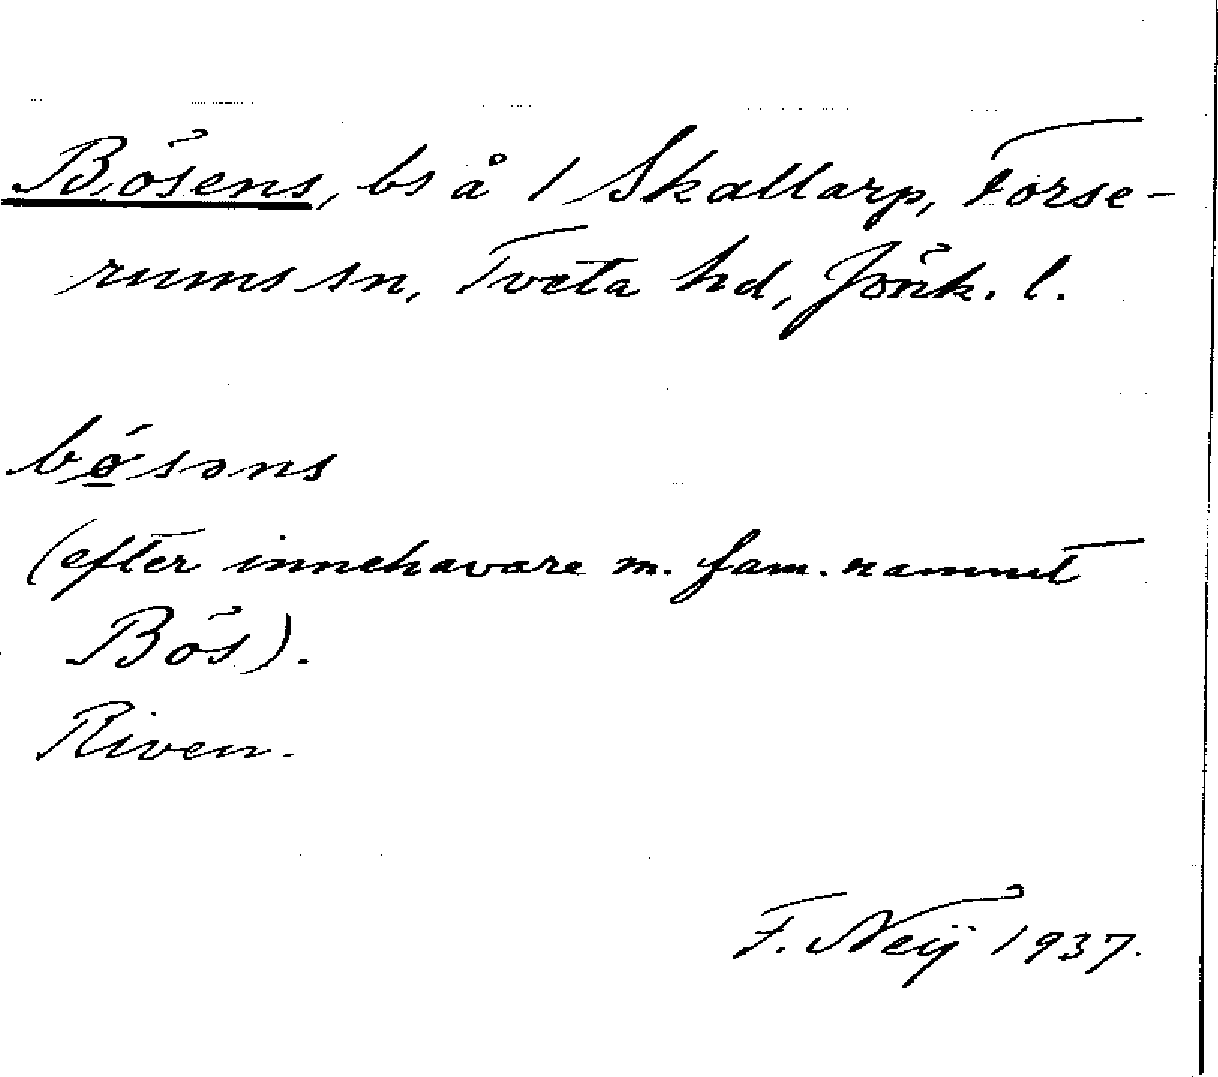 Bösens, bs å 1 Skallarp, Forse-
rums sn, Tveta hd, Jönk. l.
bǿsəns
(efter innehavare m. fam. namnet
Bös).
Riven.
F. Neij 1937.